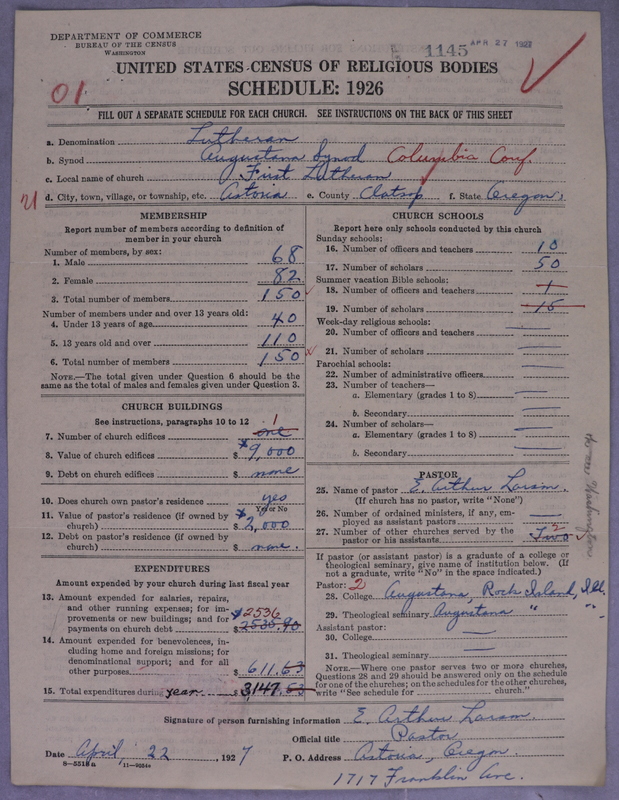 DEPARTMENT OF COMMERCE
BUREAU OF THE CENSUS
WASHINGTON
1145 APR 27 1927
UNITED STATES CENSUS OF RELIGIOUS BODIES
SCHEDULE: 1926
01
FILL OUT A SEPARATE SCHEDULE FOR EACH CHURCH. SEE INSTRUCTIONS ON THE BACK OF THIS SHEET
a. Denomination Lutheran
b. Synod Augustana Synod Columbia Conf.
c. Local name of church First Lutheran
d. City, town, village, or township, etc. Astoria e. County Clatsop f. State Oregon.
MEMBERSHIP
Report number of members according to definition of
member in your church
Number of members, by sex:
1. Male 68
2. Female 82
3. Total number of members 150
Number of members under and over 13 years old:
4. Under 13 years of age 40
5. 13 years old and over 110
6. Total number of members 150
NOTE.—The total given under Question 6 should be the
same as the total of males and females given under Question 3.
CHURCH BUILDINGS
See instructions, paragraphs 10 to 12
7. Number of church edifices one 1
8. Value of church edifices $ 9,000
9. Debt on church edifices $ none
10. Does church own pastor's residence yes
Yes or No
11. Value of pastor's residence (if owned by
church) $ 2,000
12. Debt on pastor's residence (if owned by
church) $ none.
EXPENDITURES
Amount expended by your church during last fiscal year
13. Amount expended for salaries, repairs,
and other running expenses; for im-
provements or new buildings; and for
payments on church debt $ 2536 2535.90
14. Amount expended for benevolences, in-
cluding home and foreign missions; for
denominational support; and for all
other purposes $ 611.63
15. Total expenditures during year $ 3,147.53
CHURCH SCHOOLS
Report here only schools conducted by this church
Sunday schools:
16. Number of officers and teachers 10
17. Number of scholars 50
Summer vacation Bible schools:
18. Number of officers and teachers 1
19. Number of scholars 15
Week-day religious schools:
20. Number of officers and teachers
21. Number of scholars
Parochial schools:
22. Number of administrative officers
23. Number of teachers—
a. Elementary (grades 1 to 8)
b. Secondary
24. Number of scholars—
a. Elementary (grades 1 to 8)
b. Secondary
PASTOR
25. Name of pastor E. Arthur Larson.
(If church has no pastor, write "None")
26. Number of ordained ministers, if any, em-
ployed as assistant pastors
27. Number of other churches served by the
pastor or his assistants Two 2
If pastor (or assistant pastor) is a graduate of a college or
theological seminary, give name of institution below. (If
not a graduate, write "No" in the space indicated.)
Pastor: 2
28. College Augustana, Rock Island, Ill.
29. Theological seminary Augustana " "
Assistant pastor:
30. College
31. Theological seminary
NOTE.—Where one pastor serves two or more churches,
Questions 28 and 29 should be answered only on the schedule
for one of the churches; on the schedules for the other churches,
write "See schedule for church."
Signature of person furnishing information E. Arthur Larson.
Official title Pastor
Date April, 22 1927 P. O. Address Astoria, Oregon.
8—5518a 11—9034a
1717 Franklin Ave.